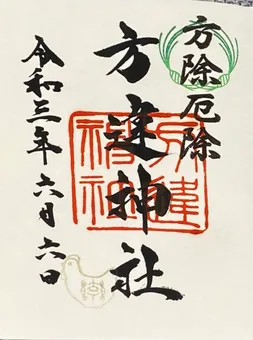 方除厄除
方違神社
方違
神社
令和三年六月六日